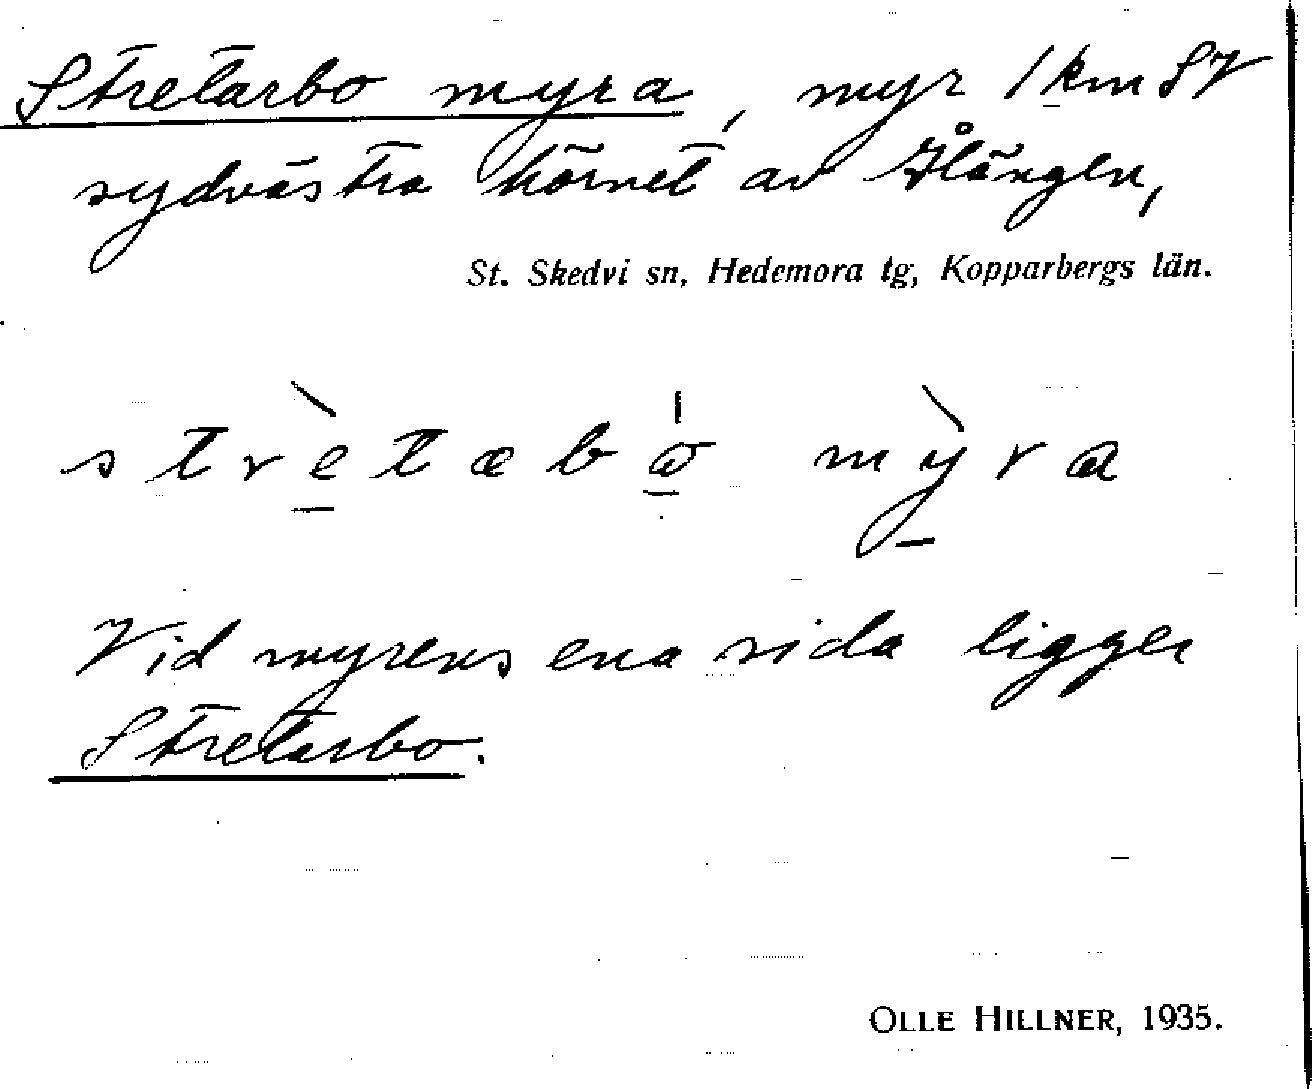 Stretarbo myra, myr 1 km SV
sydvästra hörnet av
St. Skedvi sn, Hedemora tg, Kopparbergs län.
Vid myrens ena sida ligger
Stretarbo.
OLLE HILLNER, 1935.